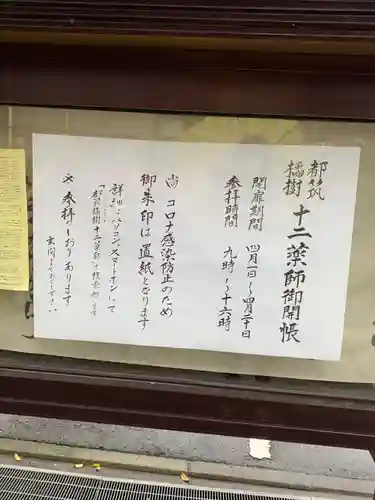 都筑
橘樹
十二薬師御開帳
開扉期間 四月一日〜四月三十日
参拝時間 九時〜十六時
尚 コロナ感染防止のため
御朱印は置紙となります
詳細はパソコン、スマートホンにて
「都筑橘樹十二薬師」で検索
※ 参拝しおりあります
玄関まで